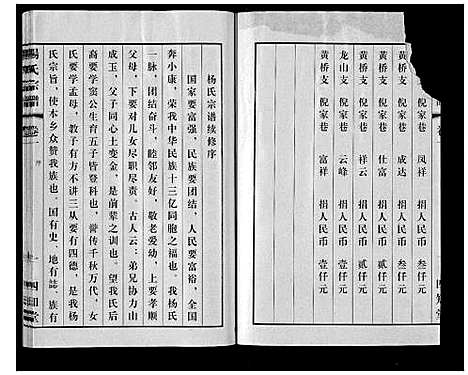 黄桥支 倪家巷 凤祥 捐人民币 叁仟元
倪家巷 成达 捐人民币 叁仟元
黄桥支 倪家巷 仕富 捐人民币 贰仟元
黄桥支 倪家巷 祥云 捐人民币 贰仟元
龙山支 倪家巷 云峰 捐人民币 壹仟元
黄桥支 倪家巷 富祥 捐人民币 壹仟元
四知堂
杨氏宗谱续修序
国家要富强，民族要团结，人民要富裕，全国
奔小康，荣我中华民族十三亿同胞之福也。我杨氏
一脉，团结奋斗，睦邻友好，敬老爱幼，上要孝顺
父母，下要对儿女尽职尽责。古人云：弟兄协力山
成玉，父子同心土变金，是前辈之训也。望我氏后
裔要学窦公生育五子皆登科也，誉传千秋万代，女
氏要学孟母，教子有方不讲三从要有四德，是我杨
氏宗旨，使本乡众赞我族也。国有史、地有誌、族有
杨氏宗谱
卷一
四知堂